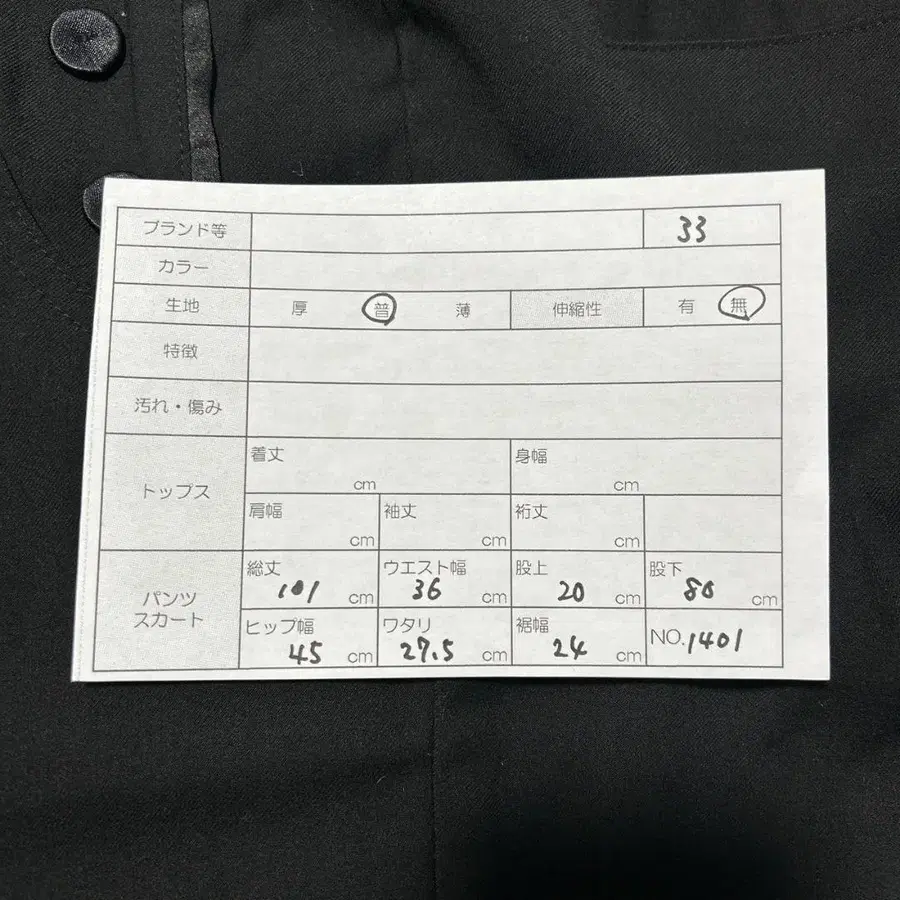 ブランド等 33
カラー
生地 厚 普 薄 伸縮性 有 無
特徴
汚れ・傷み
トップス
着丈 cm 身幅 cm
肩幅 cm 袖丈 cm 裄丈 cm
パンツ
スカート
総丈 101 cm ウエスト幅 36 cm 股上 20 cm 股下 80 cm
ヒップ幅 45 cm ワタリ 27.5 cm 裾幅 24 cm NO.1401